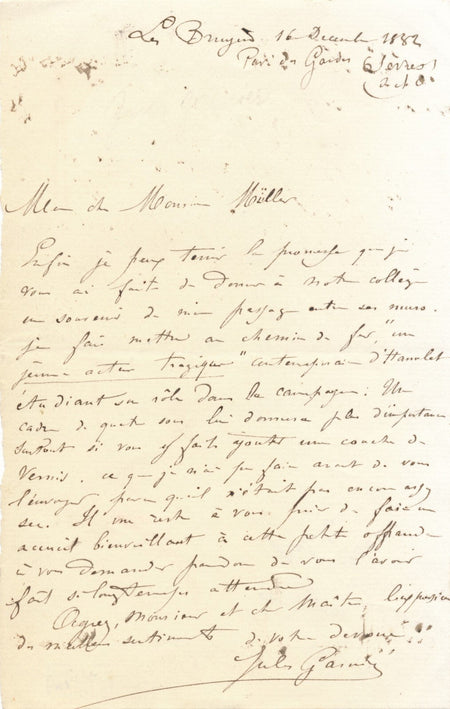 Les Bruyères 16 Décembre 1882
Parc des Gardes (Sèvres
S et O)
Mon cher Monsieur Müller
Enfin je peux tenir la promesse que je
vous ai faite de donner à notre collège
un souvenir de mon passage entre ses murs.
je fais mettre au chemin de fer, "un
jeune acteur tragique" contemporain d'Hamlet
étudiant son rôle dans la campagne: Un
cadre de quat sous lui donnera plus d'importance
surtout si vous y faites ajouter une couche de
vernis. ce que je n'ai pu faire avant de vous
l'envoyer parce qu'il n'était pas encore assez
sec. Il me reste à vous prier de faire un
accueil bienveillant à cette petite offrande
à vous demander pardon de vous l'avoir
fait si longtemps attendre
Agréez, Monsieur et cher Maître, l'expression
des meilleurs sentiments de votre dévoué
Jules Garnier